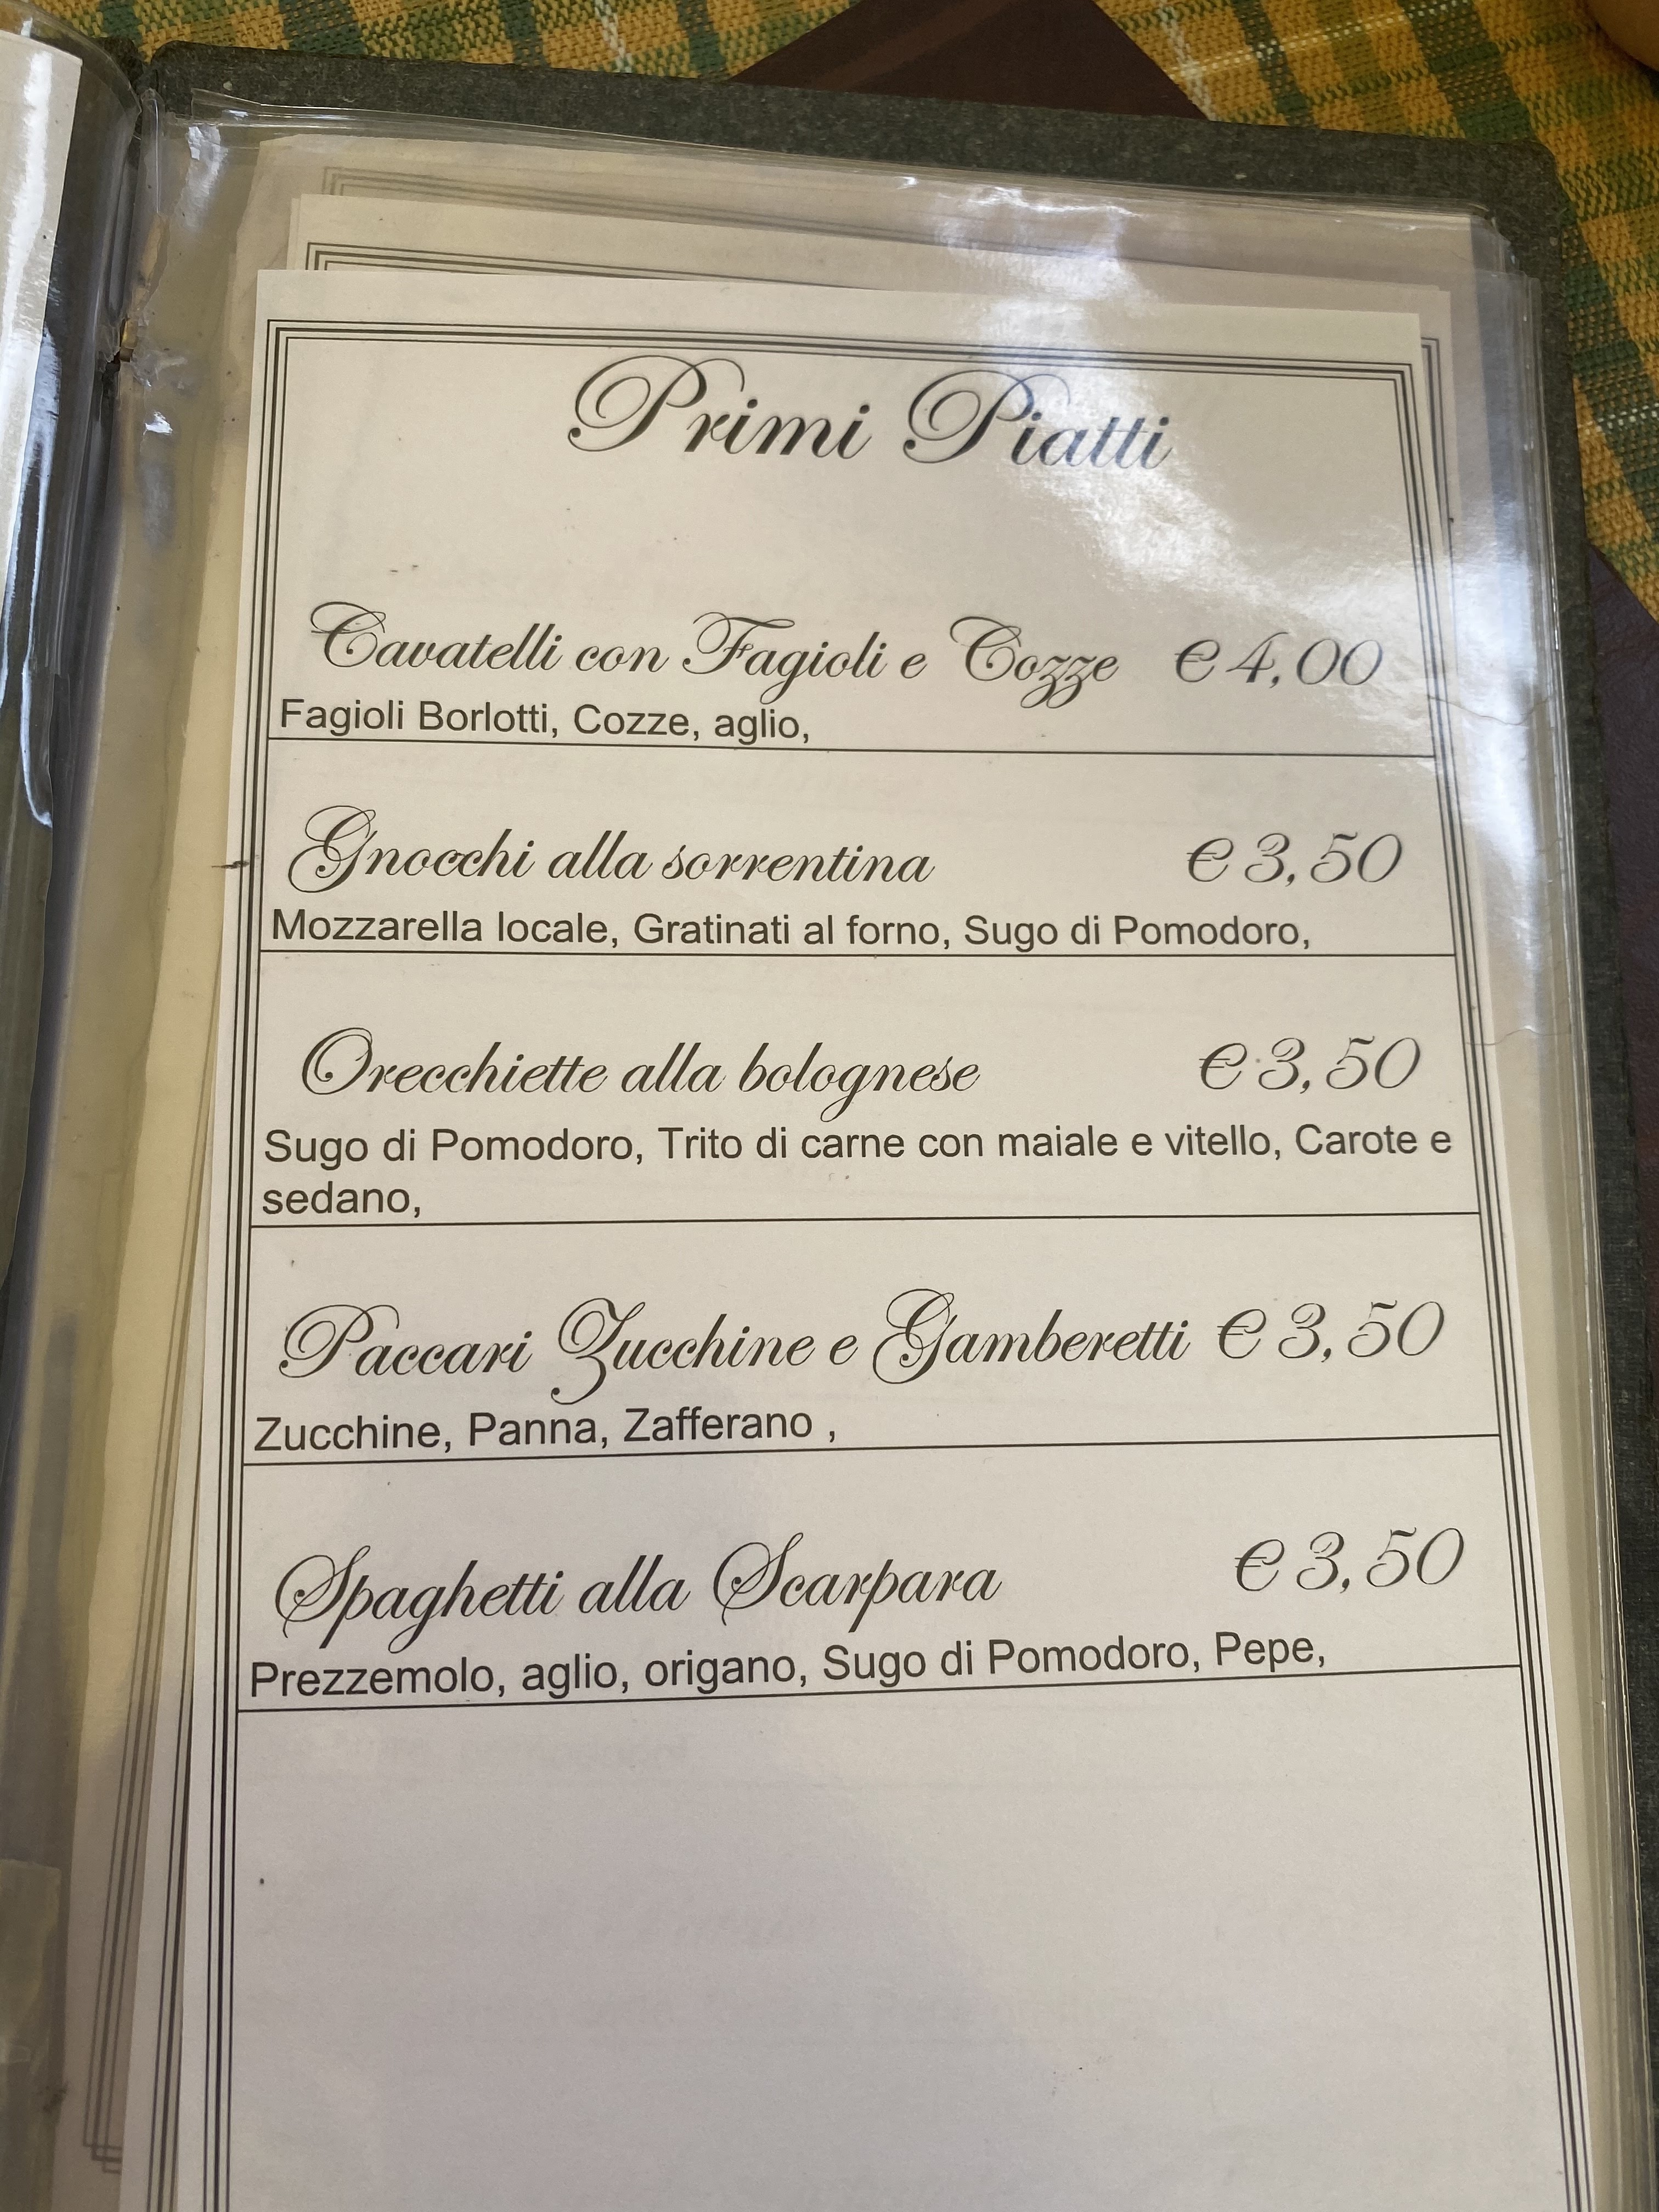 Primi Piatti
Cavatelli con Fagioli e Cozze € 4,00
Fagioli Borlotti, Cozze, aglio,
Gnocchi alla sorrentina € 3,50
Mozzarella locale, Gratinati al forno, Sugo di Pomodoro,
Orecchiette alla bolognese € 3,50
Sugo di Pomodoro, Trito di carne con maiale e vitello, Carote e
sedano,
Paccari Zucchine e Gamberetti € 3,50
Zucchine, Panna, Zafferano ,
Spaghetti alla Scarpara € 3,50
Prezzemolo, aglio, origano, Sugo di Pomodoro, Pepe,